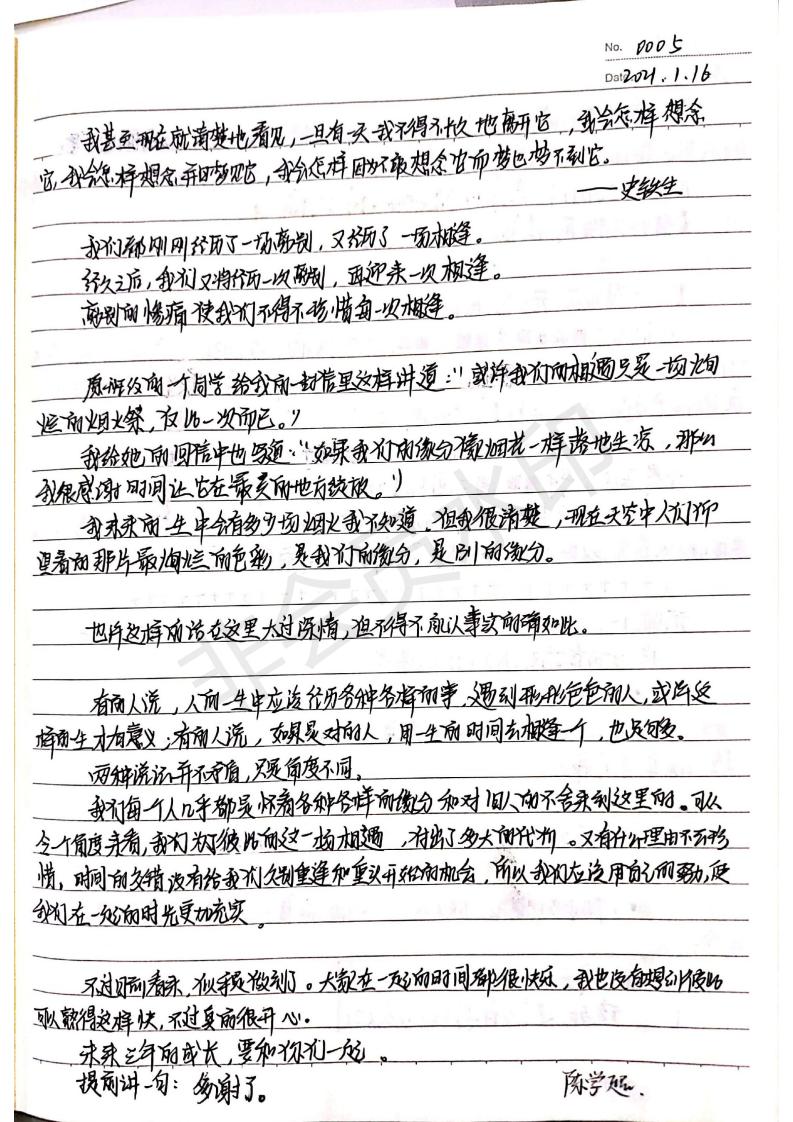 No. 0005
Date 2021.1.16
我甚至现在就清楚地看见，一旦有一天我不得不长久地离开它，我会怎样想念
它，我会怎样想念并且梦见它，我会怎样因为不敢想念它而梦也梦不到它。
——史铁生
我们都刚刚经历了一场离别，又经历了一场相逢。
经久之后，我们又将经历一次离别，再迎来一次相逢。
离别的惨痛使我们不得不珍惜每一次相逢。
原班级的一个同学给我的一封信里这样讲道：“或许我们的相遇只是一场绚
烂的烟火祭，仅此一次而已。”
我给她的回信中也写道：“如果我们的缘分像烟花一样落地生凉，那么
我很感谢时间让它在最美的地方绽放。”
我未来的一生中会有多少场烟火我不知道，但我很清楚，现在天空中人们仰
望着的那片最绚烂的色彩，是我们的缘分，是别的缘分。
也许这样的话在这里太过深情，但不得不承认事实的确如此。
有的人说，人的一生中应该经历各种各样的事，遇到形形色色的人，或许这
样的一生才有意义；有的人说，如果是对的人，用一生的时间去相逢一个，也足够。
两种说法并不矛盾，只是角度不同。
我们每一个人几乎都是怀着各种各样的缘分和对旧人的不舍来到这里的。可从
个角度来看，我们为了彼此的这一场相遇，付出了多大的代价。又有什么理由不去珍
惜，时间的交错没有给我们久别重逢和重头开始的机会，所以我们应该用自己的努力，使
我们在一起的时光更加充实。
不过目前看来，似乎是做到了。大家在一起的时间都很快乐，我也没有想到彼此
可以熟得这样快，不过真的很开心。
未来三年的成长，要和你们一起。
提前讲一句：多谢了。
非会员水印